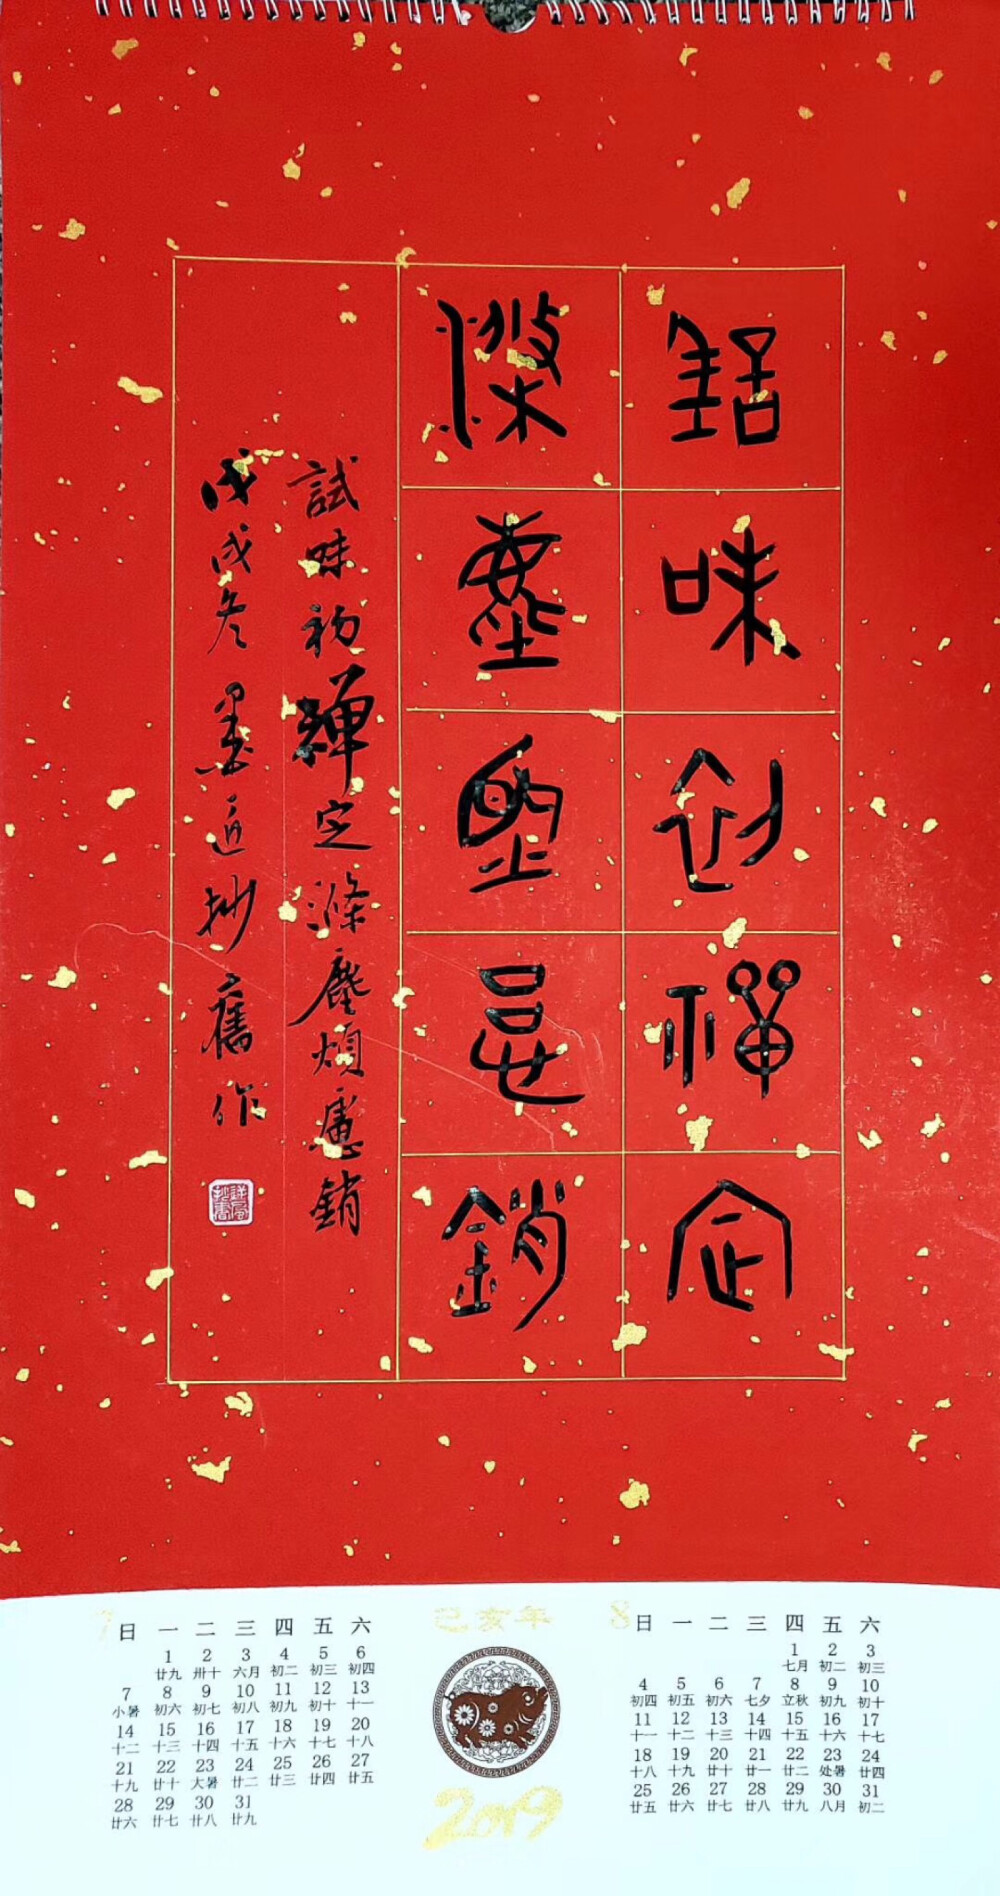 試味初禪定
滌塵煩慮銷
試味初禪定滌塵煩慮銷
戊戌冬墨抄舊作
7
日 一 二 三 四 五 六
1 2 3 4 5 6
廿九 卅十 六月 初二 初三 初四
7 8 9 10 11 12 13
小暑 初六 初七 初八 初九 初十 十一
14 15 16 17 18 19 20
十二 十三 十四 十五 十六 十七 十八
21 22 23 24 25 26 27
十九 廿十 大暑 廿二 廿三 廿四 廿五
28 29 30 31
廿六 廿七 廿八 廿九
己亥年
2019
8
日 一 二 三 四 五 六
1 2 3
七月 初二 初三
4 5 6 7 8 9 10
初四 初五 初六 七夕 立秋 初九 初十
11 12 13 14 15 16 17
十一 十二 十三 十四 十五 十六 十七
18 19 20 21 22 23 24
十八 十九 廿十 廿一 廿二 处暑 廿四
25 26 27 28 29 30 31
廿五 廿六 廿七 廿八 廿九 八月 初二